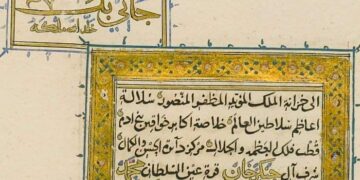 جاني بك
خلد الله ملكه
الى خزانة الملك المؤيد المظفر المنصور سلالة
اعاظم سلاطين العالم خلاصة اكابر خواقين بني ادم
قطب فلك العظمة والجلالة مركز دائرة الحسن والكمال
شرف آل جنكزخان قرة عين السلطان